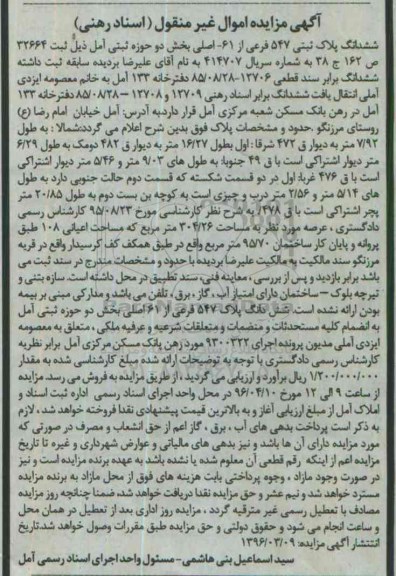 آگهی مزایده اموال غیر منقول (اسناد رهنی)
ششدانگ پلاک ثبتی ۵۴۷ فرعی از ۶۱- اصلی بخش دو حوزه ثبتی آمل ذیل ثبت ۳۲۶۶۴
ص ۱۶۲ ج ۳۸ به شماره سریال ۴۱۴۷۰۷ به نام آقای علیرضا بردیده سابقه ثبت داشته
ششدانگ برابر سند قطعی ۱۲۷۰۶-۸۵/۰۸/۲۸ دفترخانه ۱۳۳ آمل به خانم معصومه ایزدی
آملی انتقال یافت ششدانگ برابر اسناد رهنی ۱۲۷۰۹ و ۱۲۷۰۸ – ۸۵/۰۸/۲۸ دفترخانه ۱۳۳
آمل در رهن بانک مسکن شعبه مرکزی آمل قرار دارد.به آدرس: آمل خیابان امام رضا (ع)
روستای مرزنگو .حدود و مشخصات پلاک فوق بدین شرح اعلام می گردد:شمالا : به طول
۷/۹۲ متر به دیوار ق ۴۷۲ شرقا: اول بطول ۱۶/۲۷ متر به دیوار ق ۴۸۲ دومک به طول ۶/۲۹
متر دیوار اشتراکی است با ق ۴۹ جنوبا: به طول های ۹/۰۳ متر و ۵/۴۶ متر دیوار اشتراکی
است با ق ۴۷۶ غربا: اول در دو قسمت شکسته که قسمت دوم حالت جنوبی دارد به طول
های ۵/۱۴ متر و ۲/۵۶ متر درب و چیزی است به کوچه بن بست دوم به طول ۲۰/۸۵ متر
پچر اشتراکی است با ق ۴۷۸ به شرح نظر کارشناسی مورخ ۹۵/۰۸/۲۳ کارشناس رسمی
دادگستری ، عرصه مورد نظر به مساحت ۲۰۴/۲۶ متر مربع که مساحت اعیانی ۱۰۸ طبق
پروانه و پایان کار ساختمان ۹۵/۷۰ متر مربع واقع در طبق همکف کف کرسیدار واقع در قریه
مرزنگو سند مالکیت به مالکیت علیرضا بردیده با حدود و مشخصات مندرج در سند ثبت می
باشد برابر بازدید و پس از بررسی ، معاینه فنی سند تطبیق در محل داشته است. سازه بتنی و
تیرچه بلوک – ساختمان دارای امتیاز آب ، گاز ، برق ، تلفن می باشد و مدارکی مبنی بر بیمه
بودن ارائه نشده است. ششدانگ پلاک ۵۴۷ فرعی از ۶۱ اصلی بخش دو حوزه ثبتی آمل
به انضمام کلیه مستحدثات و منضمات و متعلقات شرعیه و عرفیه ملکی ، متعلق به معصومه
ایزدی آملی مدیون پرونده اجرای ۹۳۰۰۳۲۲ مورد رهن بانک مسکن مرکزی آمل برابر نظریه
کارشناس رسمی دادگستری با توجه به توضیحات ارائه شده مبلغ کارشناسی شده به مقدار
۱/۲۰۰/۰۰۰/۰۰۰ ریال برآورد و ارزیابی می گردید ، از طریق مزایده به فروش می رسد. مزایده
از ساعت ۹ الی ۱۲ مورخ ۹۶/۰۴/۱۰ در محل واحد اجرای اسناد رسمی اداره ثبت اسناد و
املاک آمل از مبلغ ارزیابی آغاز و به بالاترین قیمت پیشنهادی نقدا فروخته خواهد شد ، لازم
به ذکر است پرداخت بدهی های آب ، برق ، گاز اعم از حق انشعاب و مصرف در صورتی که
مورد مزایده دارای آن ها باشد و نیز بدهی های مالیاتی و عوارض شهرداری و غیره تا تاریخ
مزایده اعم از اینکه رقم قطعی آن معلوم شده یا نشده باشد به عهده برنده مزایده است و نیز
در صورت وجود مازاد ، وجوه پرداختی بابت هزینه های فوق از محل مازاد به برنده مزایده
مسترد خواهد شد و نیم عشر و حق مزایده نقدا دریافت خواهد شد، ضمنا چنانچه روز مزایده
مصادف با تعطیل رسمی غیر مترقبه گردد ، مزایده روز اداری بعد از تعطیل در همان محل
و ساعت انجام می شود و حقوق دولتی و حق مزایده طبق مقررات وصول خواهد شد.تاریخ
انتشار آگهی مزایده: ۱۳۹۶/۰۳/۰۹
سید اسماعیل بنی هاشمی- مسئول واحد اجرای اسناد رسمی آمل